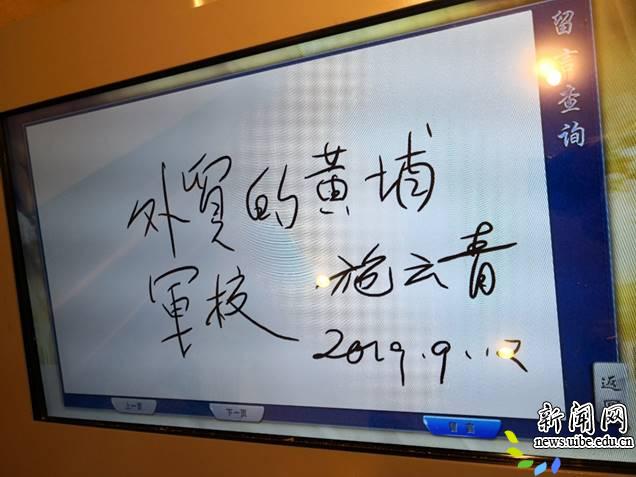 留言查询
外貿的黄埔
軍校 施云青
2019.9.12
上一页
下一页
留言
新闻网
news.uibe.edu.cn